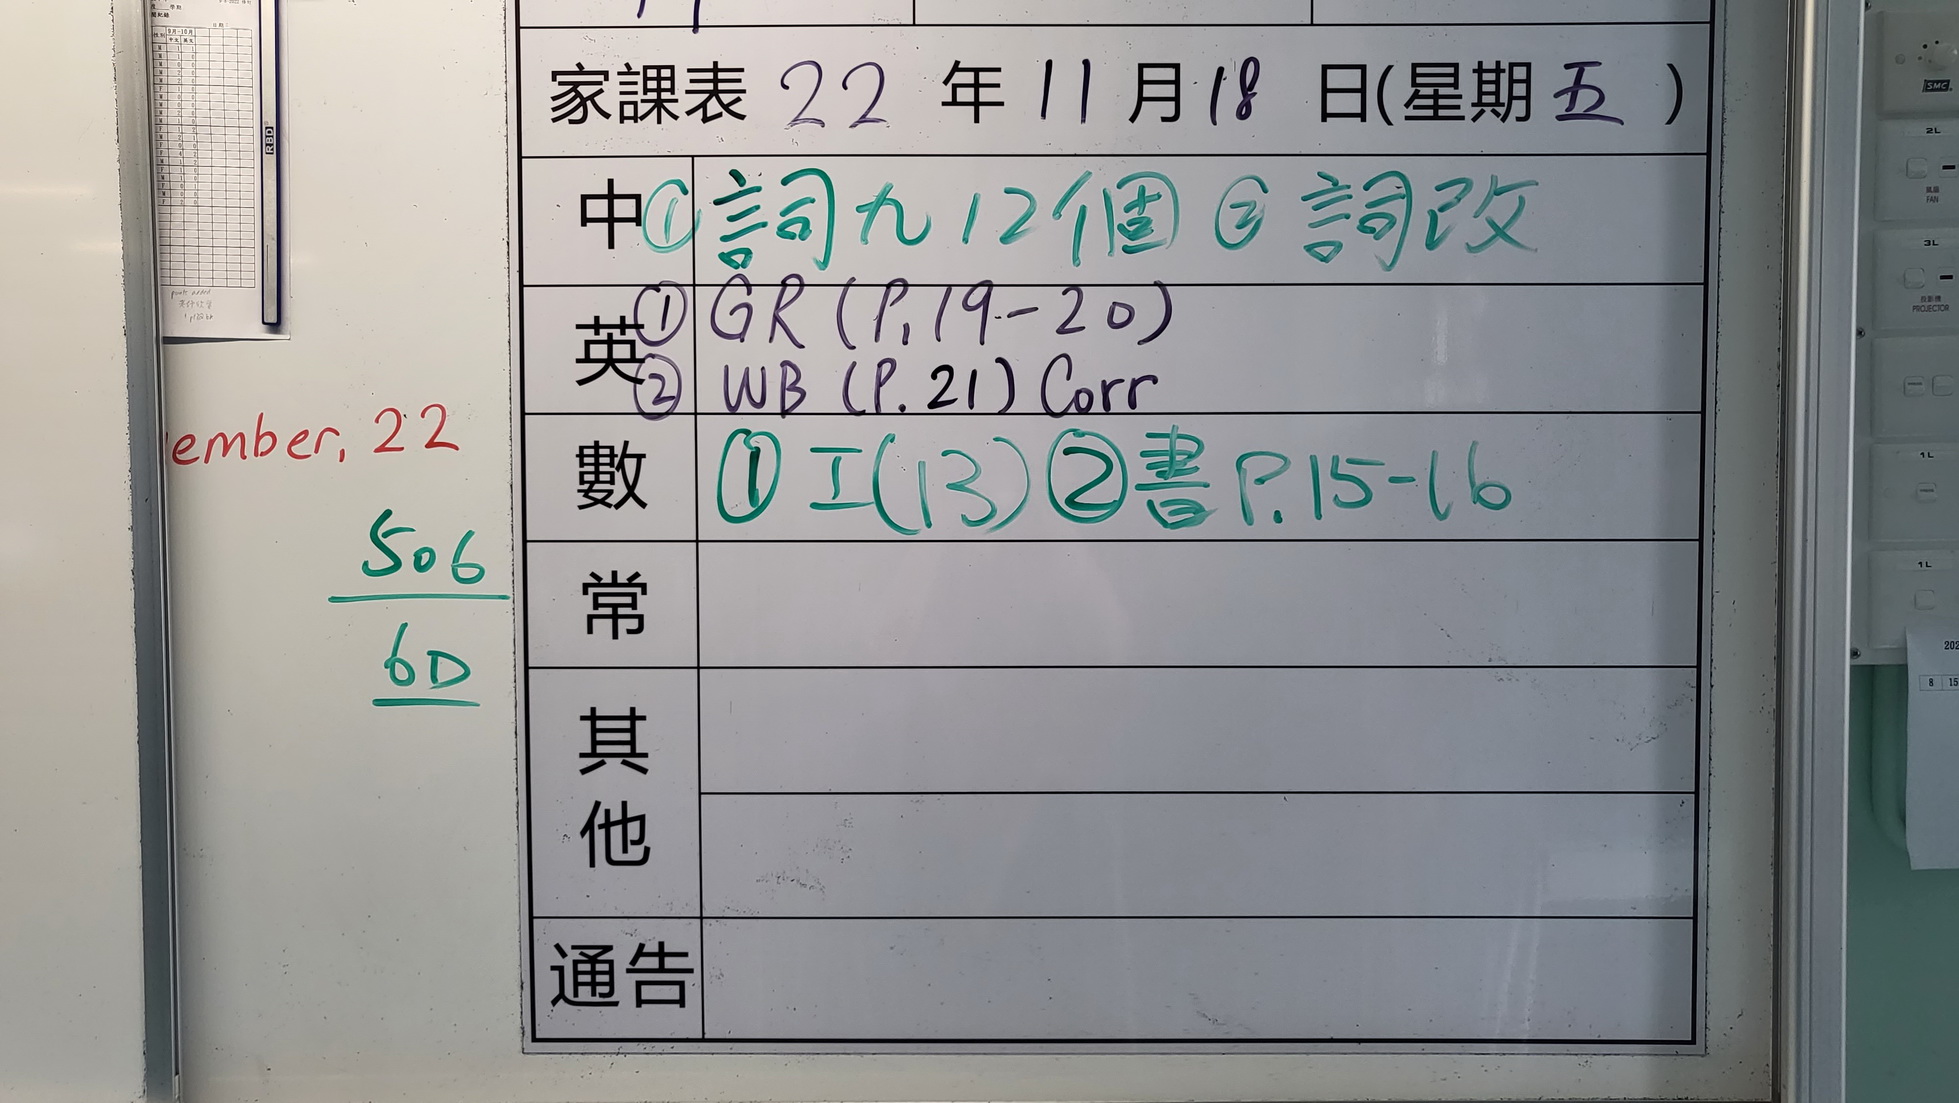 家課表 22 年 11 月 18 日(星期 五 )
中 ① 詞九 12個 ② 詞改
英 ① GR (P.19-20)
② WB (P.21) Corr
數 ① 工(13) ② 書 P.15-16
常
其他
通告
ember, 22
506
6D
RBD
SMC
2L
風扇
FAN
3L
投影機
PROJECTOR
1L
1L
202
8 15